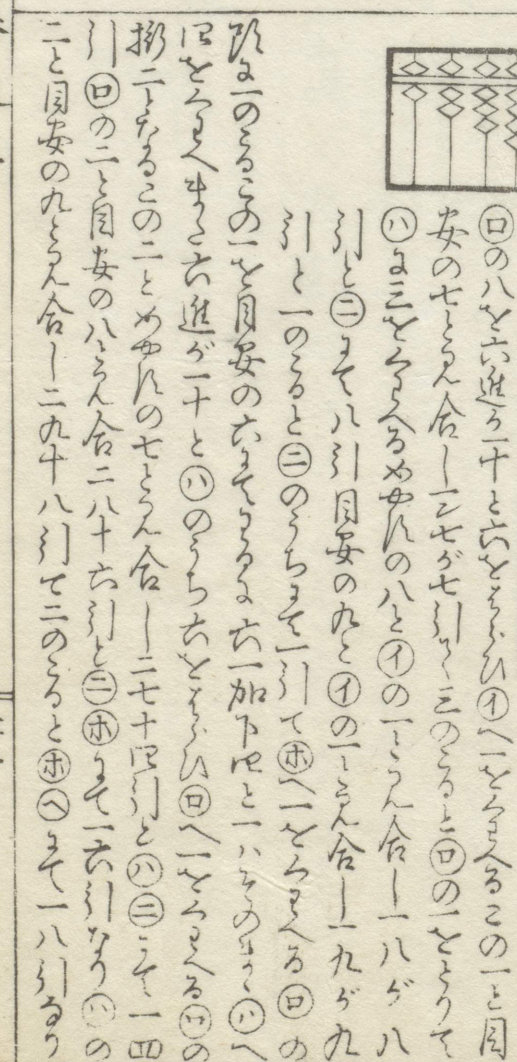 ㋺の八を六進一十と六をはらひ㋑へ一をくわへるこの一と目
安の七とうん合し一七が七引く三のこると㋺の一をとりて
㋩に三をくわへるめやすの八と㋑の一とうん合し一八が八
引と㋥にて八引目安の九と㋑の一とうん合し一九が九
引と一のこると㋥のうちにて一引て㋭へ一をくわへる㋺の
一のこるこの一を目安の六にてわるに六一加下四と一ハそのまゝ㋩へ
四をくわへまた六進が一十と㋩のうち六をはらひ㋺へ一をくわへる㋺の
二となるこの二とめやすの七とうん合し二七十四引と㋩㋥にて一四
引㋺の二と目安の八とうん合二八十六引と㋥㋭にて一六引なり㋺の
二と目安の九とうん合し二九十八引て二のこると㋭㋬にて一八引なり